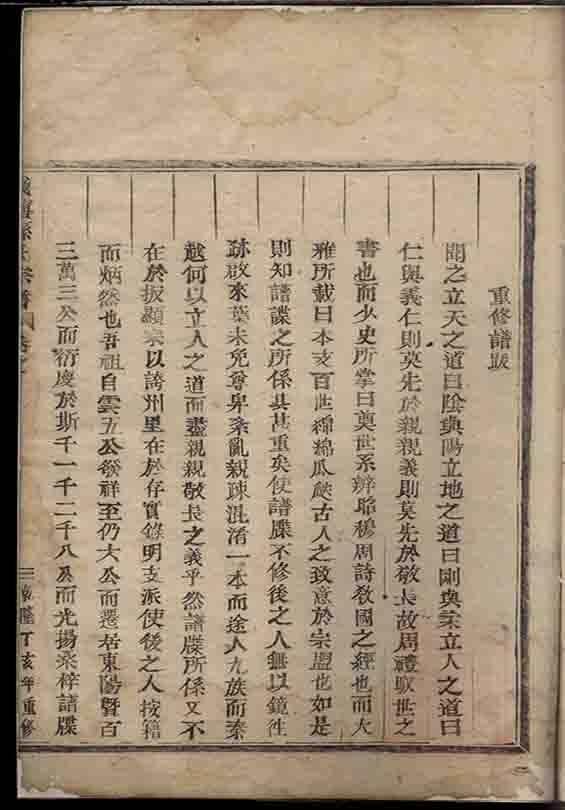 重修譜跋
聞之立天之道曰陰與陽立地之道曰剛與柔立人之道曰
仁與義仁則莫先於親親義則莫先於敬長故周禮馭世之
書也而少史所掌曰奠世系辨昭穆周詩教國之經也而大
雅所載曰本支百世綿綿瓜瓞古人之致意於宗盟也如是
則知譜諜之所係甚重矣使譜牒不修後之人無以鏡徃
跡啟來葉未免尊卑紊亂親疎混淆一本而途人九族而秦
越何以立人之道而盡親親敬長之義乎然譜牒所係又不
在於扳顯宗以誇州里在於存實錄明支派使後之人按籍
而炳然也吾祖自雲五公發祥至仍大公而遷居東陽暨百
三萬三公而衍慶於斯千一千二千八公而光揚桑梓諸牒
孫氏宗譜
丁亥年重修